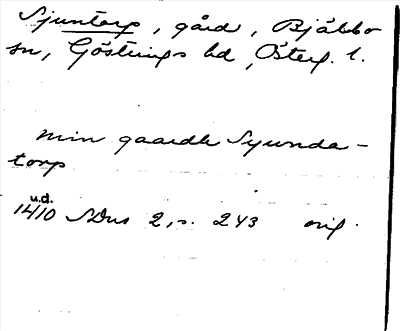 Sjuntorp, gård, Bjälbo
sn, Göstrings hd, Österg. l.
min gaardh Syunda-
torp
u.d.
1410 SDns 2, s. 243 orig.